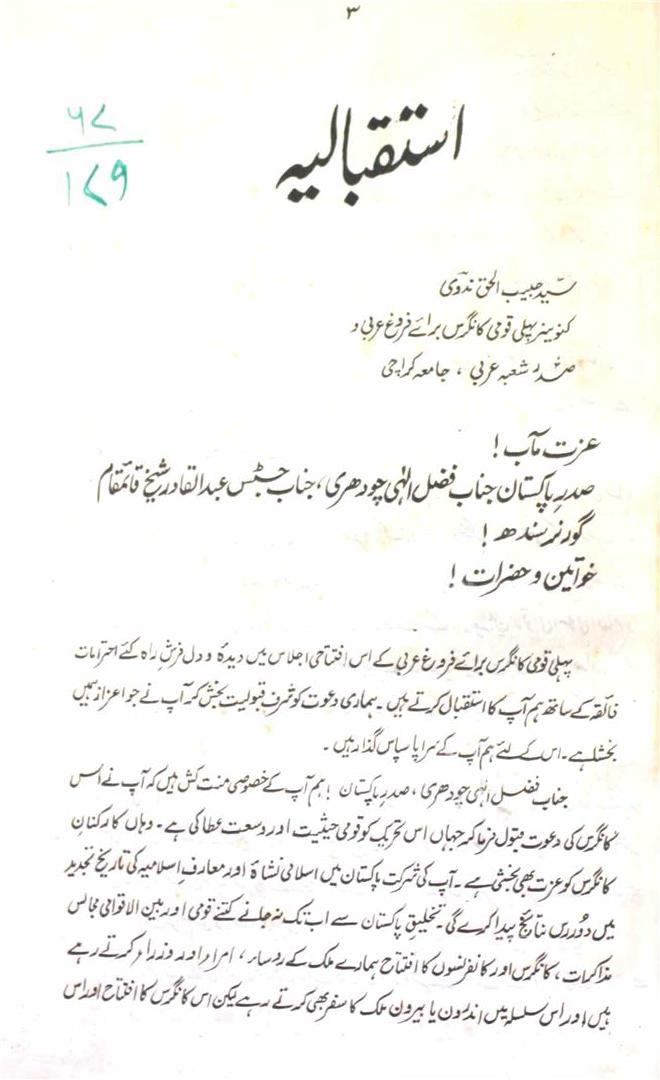 ۳
۶۷
۱۷۹
استقبالیہ
سید حبیب الحق ندوی
کنوینر پہلی قومی کانگرس برائے فروغ عربی و
صدر شعبہ عربی ، جامعہ کراچی
عزت مآب !
صدرِ پاکستان جناب فضل الٰہی چودھری، جناب جسٹس عبدالقادر شیخ قائمقام
گورنر سندھ !
خواتین و حضرات !
پہلی قومی کانگرس برائے فروغ عربی کے اس افتتاحی اجلاس میں دیدۂ و دل فرشِ راہ کئے احترامات
فائقہ کے ساتھ ہم آپ کا استقبال کرتے ہیں ۔ ہماری دعوت کو شرفِ قبولیت بخش کر آپ نے جو اعزاز ہمیں
بخشا ہے ۔ اس کے لئے ہم آپ کے سراپا سپاس گذار ہیں ۔
جناب فضل الٰہی چودھری ، صدرِ پاکستان ! ہم آپ کے خصوصی منت کش ہیں کہ آپ نے اس
کانگرس کی دعوت قبول فرما کر جہاں اس تحریک کو قومی حیثیت اور وسعت عطا کی ہے ۔ وہاں کارکنانِ
کانگرس کو عزت بھی بخشی ہے ۔ آپ کی شرکت پاکستان میں اسلامی نشاۃ اور معارفِ اسلامیہ کی تاریخِ تجدید
میں دُوررس نتائج پیدا کرے گی ۔ تخلیقِ پاکستان سے اب تک نہ جانے کتنے قومی اور بین الاقوامی مجالس
مذاکرات ، کانگرس اور کانفرنسوں کا افتتاح ہمارے ملک کے روساء ، امراء اور وزراء کرتے رہے
ہیں اور اس سلسلہ میں اندرون یا بیرون ملک کا سفر بھی کرتے رہے لیکن اس کانگرس کا افتتاح اور اس